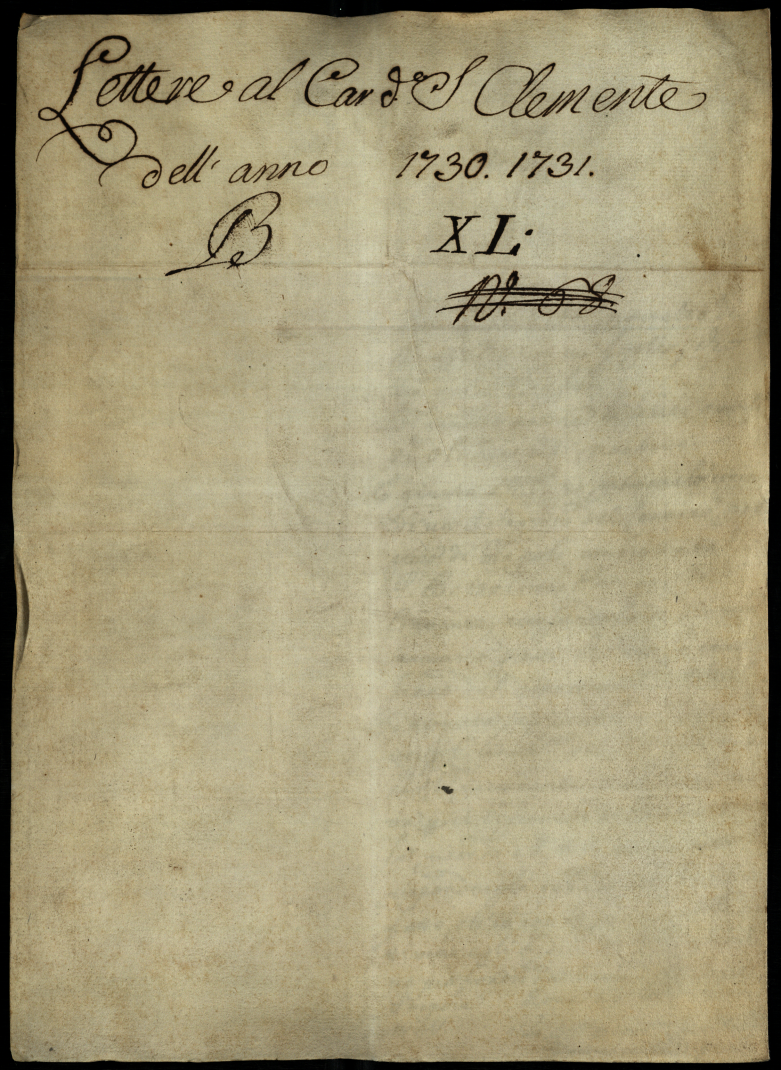 Lettere al Card.e S Clemente
dell' anno 1730. 1731.
B XL.
N. 68.